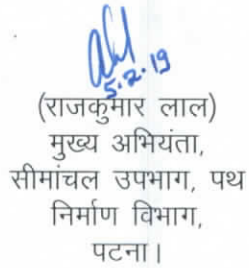 5.2.19
(राजकुमार लाल)
मुख्य अभियंता,
सीमांचल उपभाग, पथ
निर्माण विभाग,
पटना।